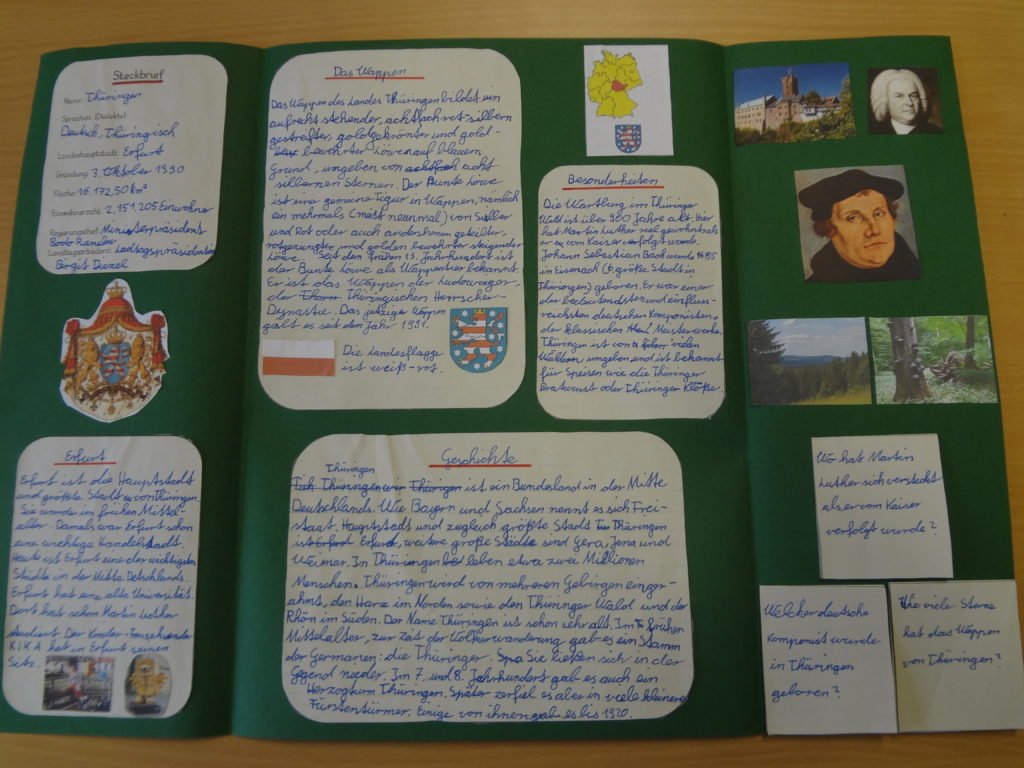 Steckbrief
Name: Thüringen
Sprachen (Dialekte):
Deutsch, Thüringisch
Landeshauptstadt: Erfurt
Gründung: 3. Oktober 1990
Fläche: 16.172,50 km²
Einwohnerzahl: 2.151.205 Einwohner
Regierungschef: Ministerpräsident
Bodo Ramelow
Landtagspräsident:
Birgit Diezel
Erfurt
Erfurt ist die Hauptstadt
und größte Stadt von Thüringen.
Sie wurde im frühen Mittel-
alter. Damals war Erfurt schon
eine wichtige Handelsstadt.
Heute ist Erfurt eine der wichtigsten
Städte in der Mitte Detschlands.
Erfurt hat eine alte Universität.
Dort hat schon Martin Luther
studiert. Der Kinder-Fernsehsender
KIKA hat in Erfurt seinen
Sitz.
Das Wappen
Das Wappen des Landes Thüringen bildet ein
aufrecht stehender, achtfach rot-silbern
gestreifter, goldgekrönter und gold-
bewehrter Löwe auf blauem
Grund, umgeben von acht
silbernen Sternen. Der Bunte Löwe
ist eine gemeine Figur in Wappen, nämlich
ein mehrmals (meist neunmal) von Silber
und Rot oder auch andersherum geteilter,
rotgezungter und golden bewehrter steigender
Löwe. Seit dem 13. Jahrhundert ist
der Bunte Löwe als Wappentier bekannt.
Er ist das Wappen der Ludowinger,
der Thüringischen Herrscher-
Dynastie. Das jetzige Wappen
gibt es seit dem Jahr 1991.
Die Landesflagge
ist weiß-rot.
Besonderheiten
Die Wartburg im Thüringer
Wald ist über 900 Jahre alt. Hier
hat Martin Luther mal gewohnt, als
er vom Kaiser verfolgt wurde.
Johann Sebastian Bach wurde 1685
in Eisenach (6. größte Stadt in
Thüringen) geboren. Er war einer
der bedeutendsten und einfluss-
reichsten deutschen Komponisten
der klassischen Meisterwerke.
Thüringen ist von vielen
Wäldern umgeben und ist bekannt
für Speisen wie die Thüringer
Bratwurst oder Thüringer Klöße.
Geschichte
Thüringen
ist ein Bundesland in der Mitte
Deutschlands. Wie Bayern und Sachsen nennt es sich Frei-
staat. Hauptstadt und zugleich größte Stadt Thüringen
ist Erfurt, weitere große Städte sind Gera, Jena und
Weimar. In Thüringen leben etwa zwei Millionen
Menschen. Thüringen wird von mehreren Gebirgen einger-
ahmt, den Harz im Norden sowie den Thüringer Wald und der
Rhön im Süden. Der Name Thüringen ist schon sehr alt. Im frühen
Mittelalter, zur Zeit der Völkerwanderung gab es ein Stamm
der Germanen: die Thüringer. Sie ließen sich in der
Gegend nieder. Im 7. und 8. Jahrhundert gab es auch ein
Herzogtum Thüringen. Später zerfiel es aber in viele kleinere
Fürstentürmer. Einige von ihnen gab es bis 1920.
Wo hat Martin
Luther sich versteckt
als er vom Kaiser
verfolgt wurde?
Welcher deutsche
Komponist wurde
in Thüringen
geboren?
Wie viele Sterne
hat das Wappen
von Thüringen?